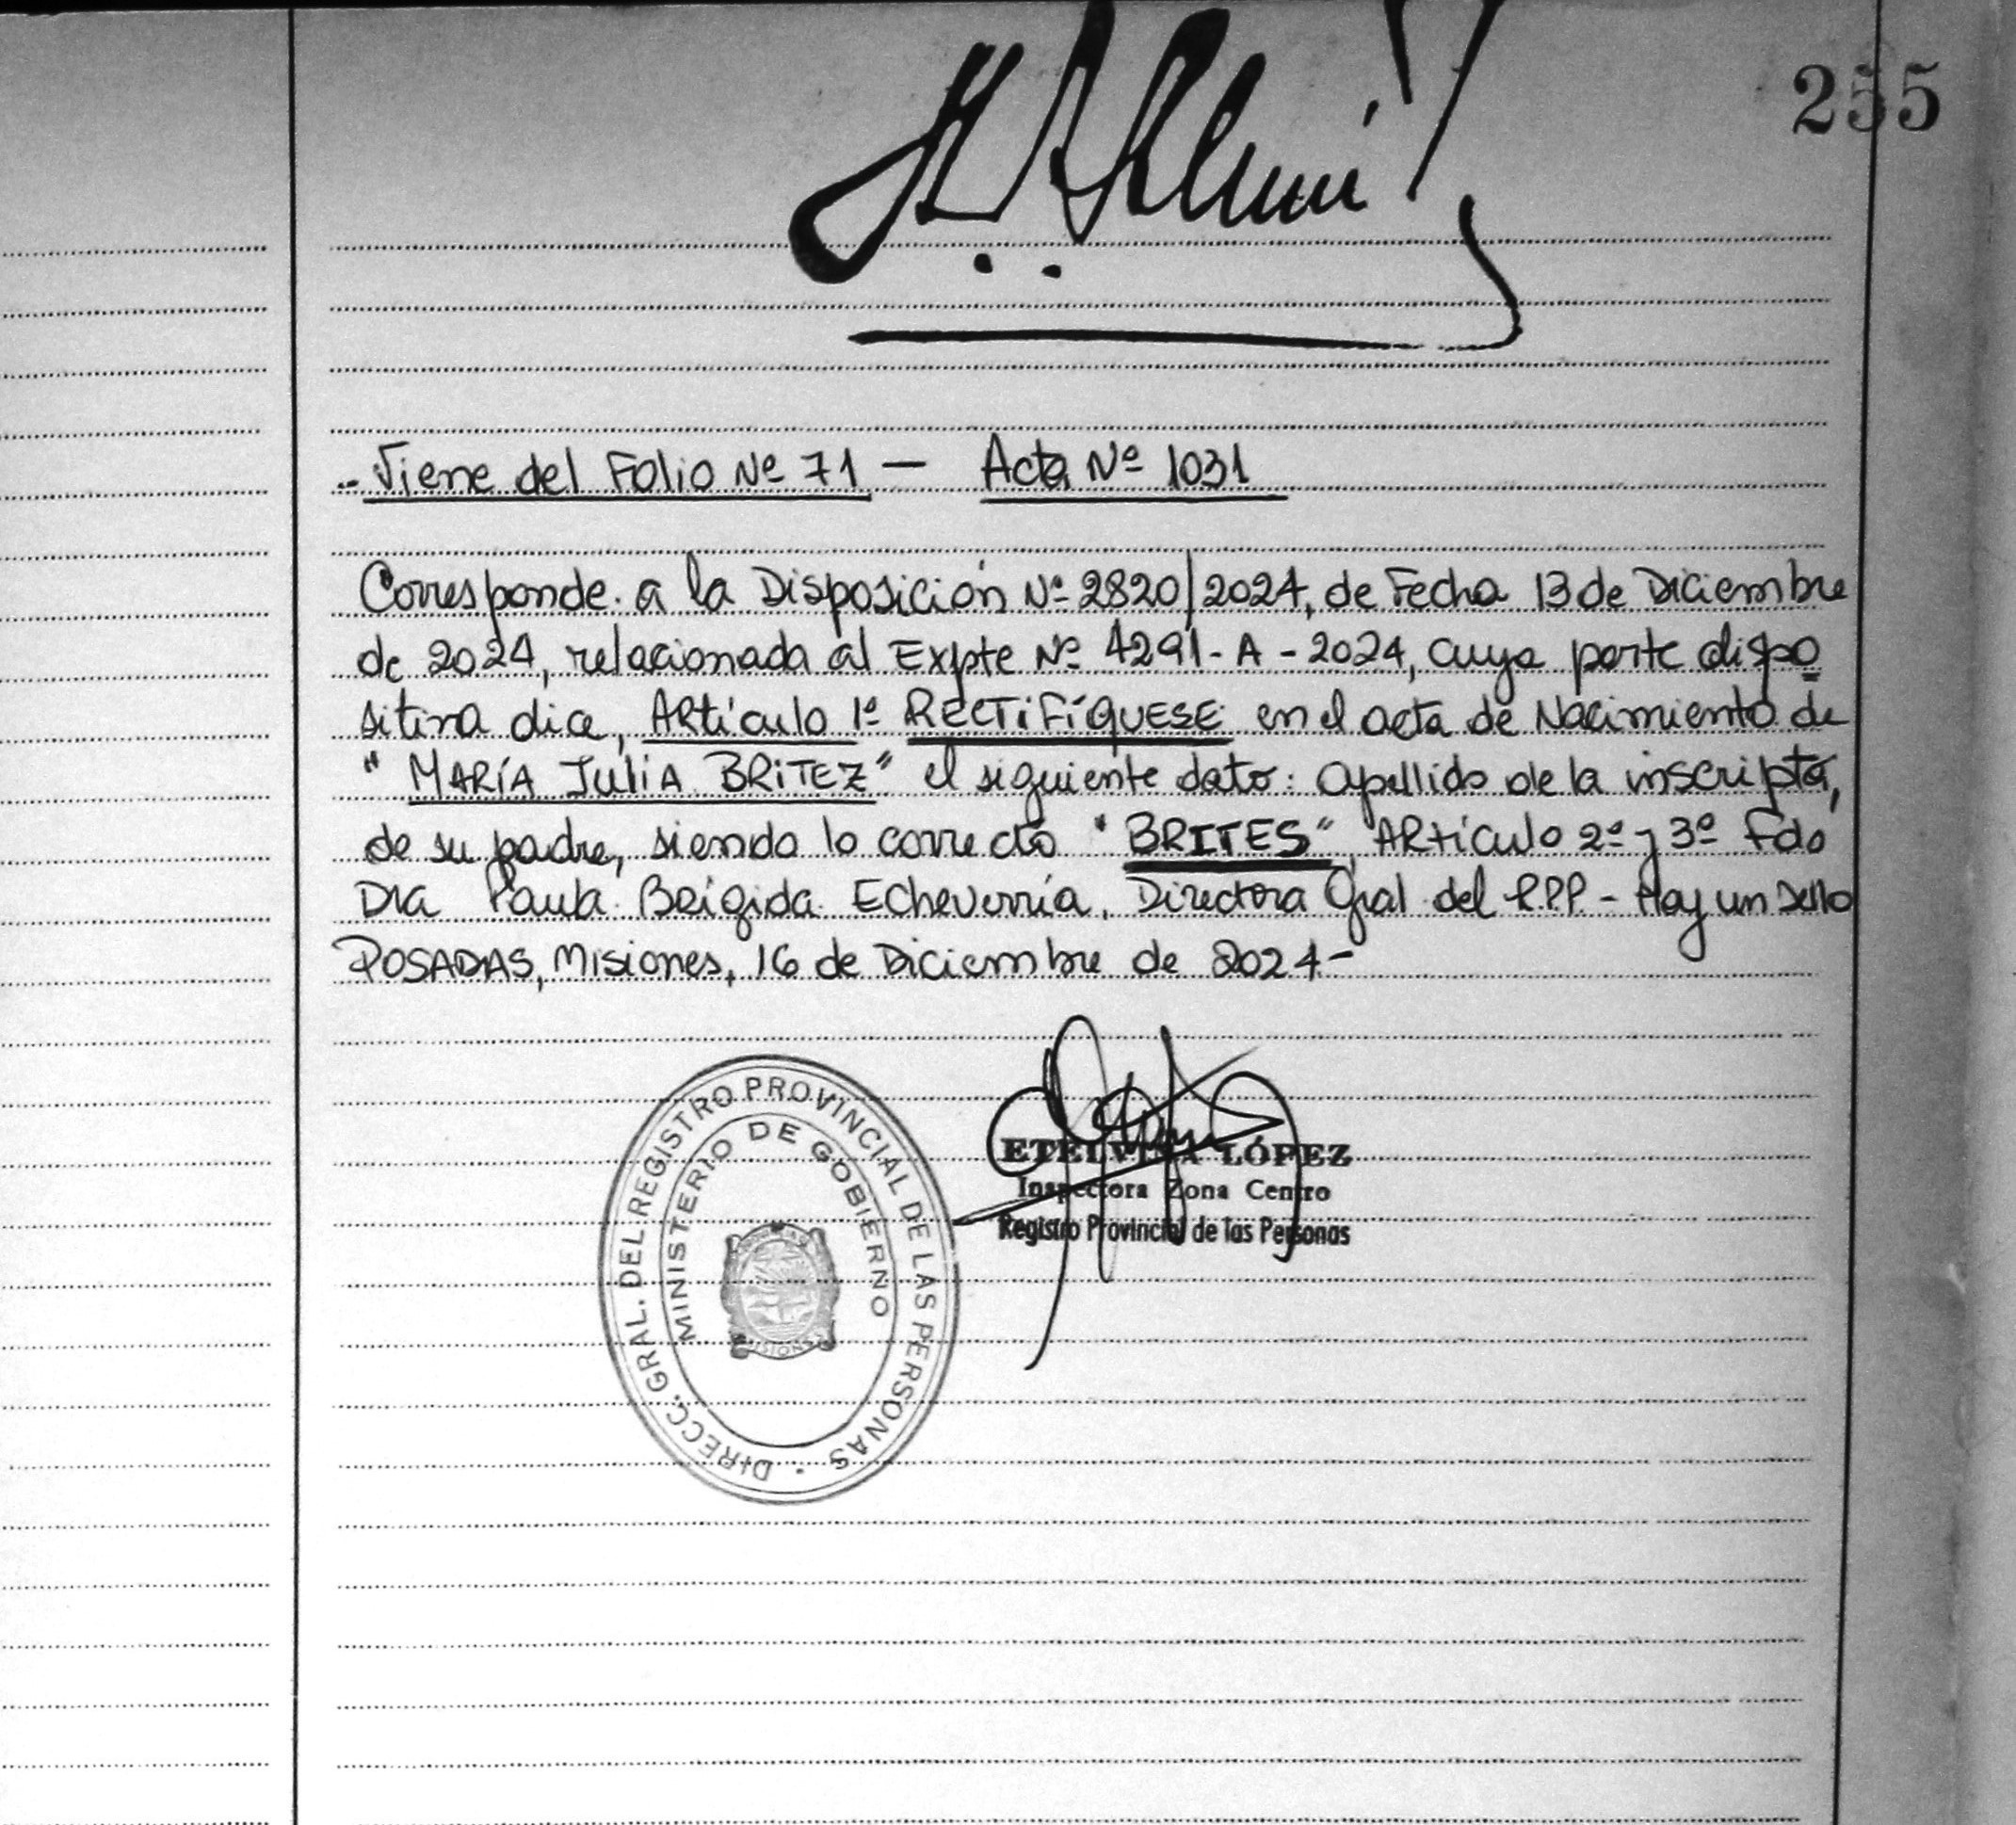 255
- Viene del Folio Nº 71 — Acta Nº 1031
Corresponde a la Disposición Nº 2820/2024, de Fecha 13 de Diciembre
de 2024, relacionada al Expte Nº 4291-A-2024, cuya parte dispo
sitiva dice, Artículo 1º RECTIFÍQUESE en el acta de Nacimiento de
"MARÍA JULIA BRITEZ" el siguiente dato: apellido de la inscripta,
de su padre, siendo lo correcto "BRITES", Artículo 2º y 3º Fdo
Dra Paula Brígida Echeverría, Directora Gral del RPP - Hay un sello
POSADAS, Misiones, 16 de Diciembre de 2024-
DIRECC. GRAL. DEL REGISTRO PROVINCIAL DE LAS PERSONAS
MINISTERIO DE GOBIERNO
MISIONES
ETELVINA LÓPEZ
Inspectora Zona Centro
Registro Provincial de las Personas